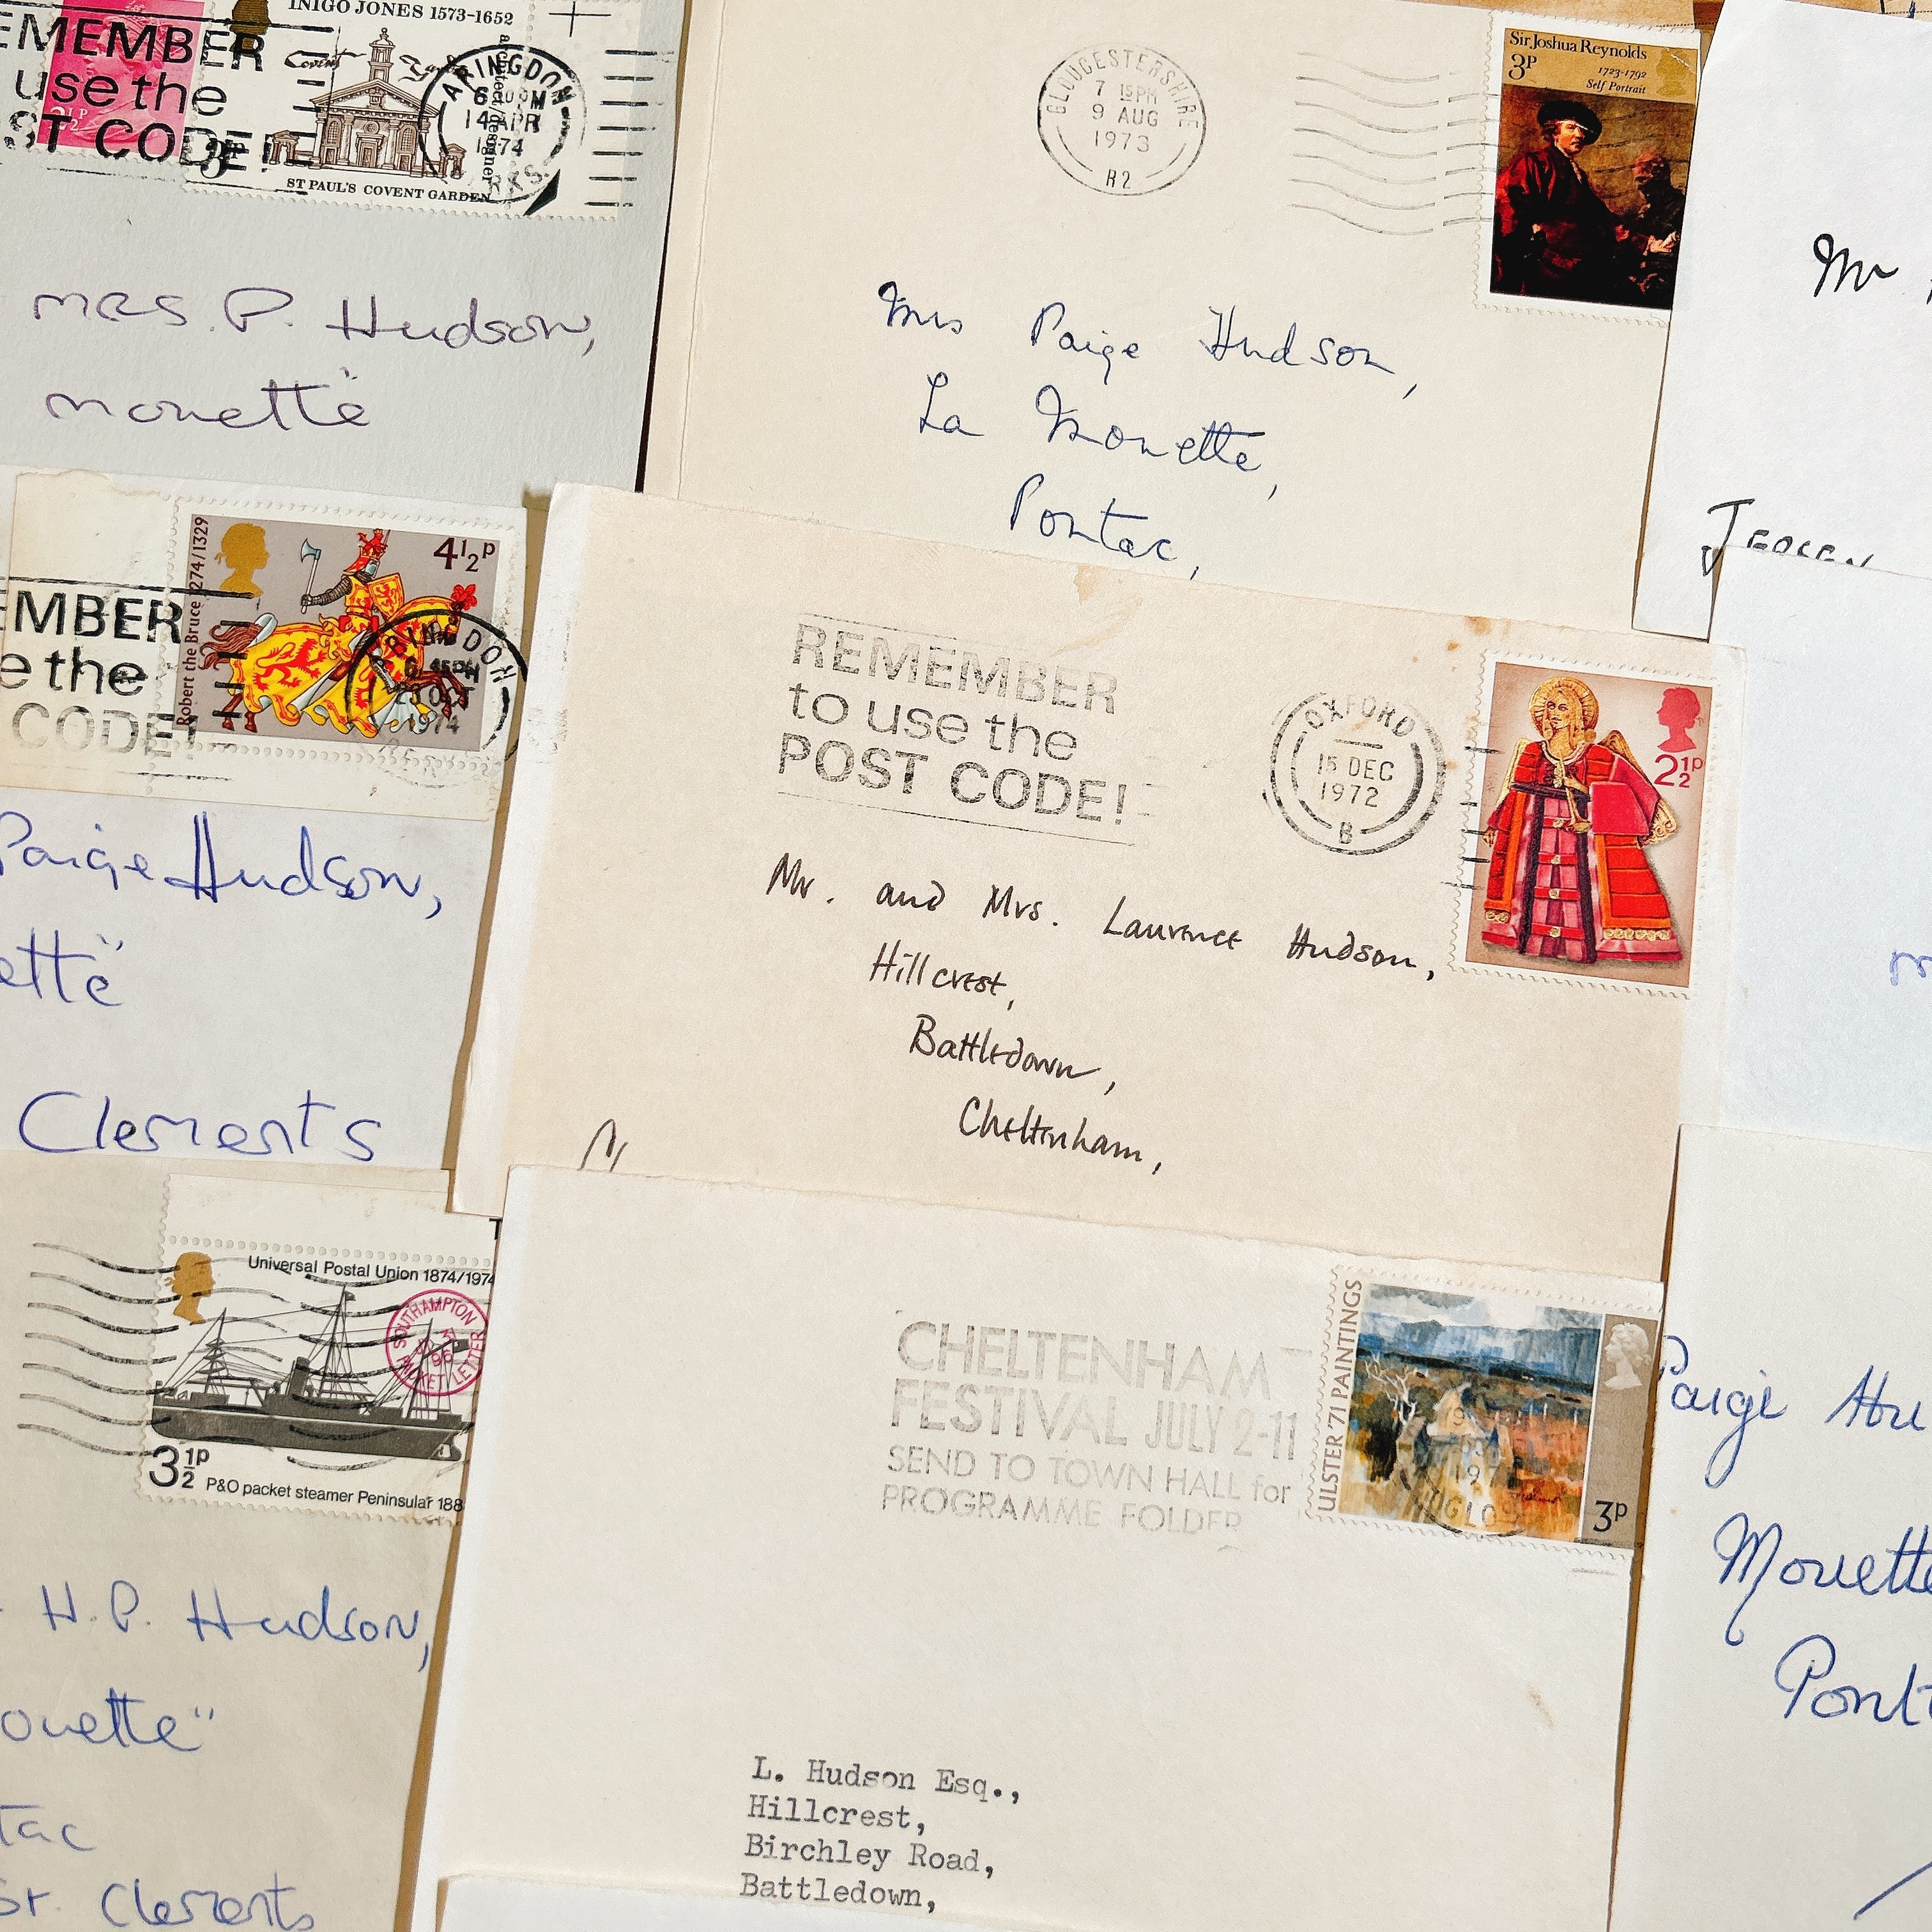 INIGO JONES 1573-1652
EMEMBER
use the
ST CODE!
3P
Covent
architect designer
ST PAUL'S COVENT GARDEN
ABINGDON
14 APR
1974
MRS. P. Hudson,
mouette"
GLOUCESTERSHIRE
7 15PM
9 AUG
1973
R2
Sir Joshua Reynolds
3P
1723-1792
Self Portrait
Mrs Paige Hudson,
La Mouette,
Pontac,
Mr
JERSEY
Robert the Bruce 1274/1329
4½P
EMBER
e the
CODE!
ABINGDON
6 45PM
OCT
1974
Paige Hudson,
ette"
Clements
REMEMBER
to use the
POST CODE!
OXFORD
15 DEC
1972
B
2½P
Mr. and Mrs. Laurence Hudson,
Hillcrest,
Battledown,
Cheltenham,
Universal Postal Union 1874/1974
SOUTHAMPTON
PACKET LETTER
3½P
P&O packet steamer Peninsular 188
H.P. Hudson,
ouette"
tac
St. Clements
CHELTENHAM
FESTIVAL JULY 2-11
SEND TO TOWN HALL for
PROGRAMME FOLDER
ULSTER '71 PAINTINGS
3P
L. Hudson Esq.,
Hillcrest,
Birchley Road,
Battledown,
Paige Hu
Mouette
Pont